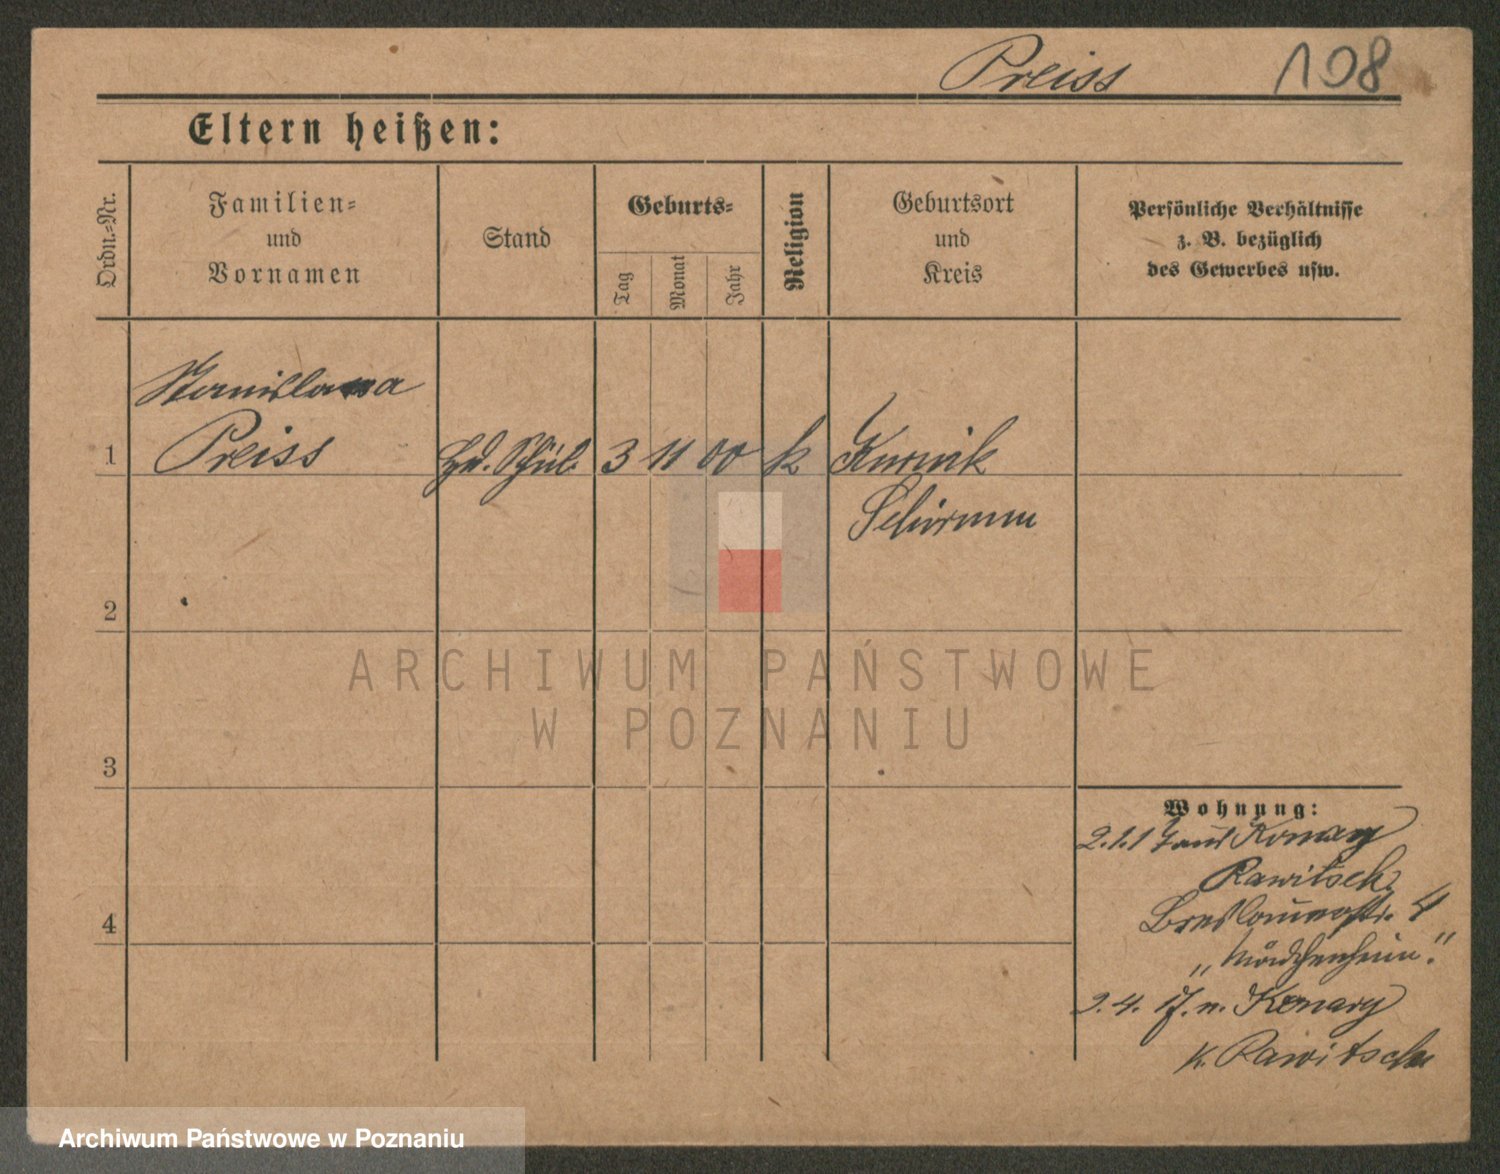 Preiss 108
Eltern heißen:
Ordn.-Nr.
Familien-
und
Vornamen
Stand
Geburts-
Tag
Monat
Jahr
Religion
Geburtsort
und
Kreis
Persönliche Verhältnisse
z. B. bezüglich
des Gewerbes usw.
Stanislawa
1 Preiss Hd. Schül. 3 11 00 k Kurnik
Schrimm
2
3
4
Wohnung:
2.1.1 Konary
Rawitsch
Breslauerstr. 4
„Mädchenheim."
2.4. 17. n. Konary
K. Rawitsch
ARCHIWUM PAŃSTWOWE
W POZNANIU
Archiwum Państwowe w Poznaniu